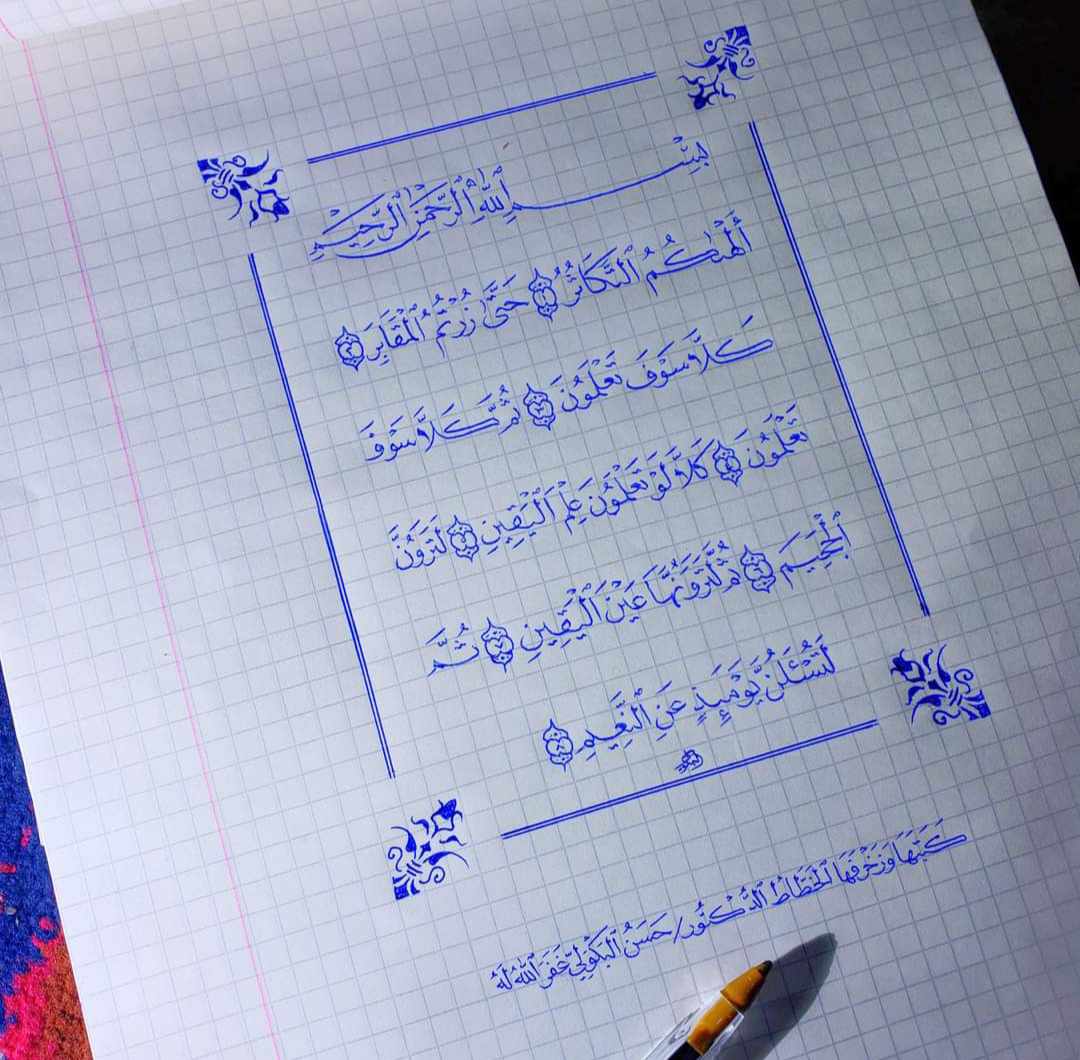 بِسْمِ ٱللَّهِ ٱلرَّحْمَٰنِ ٱلرَّحِيمِ
أَلْهَىٰكُمُ ٱلتَّكَاثُرُ ١ حَتَّىٰ زُرْتُمُ ٱلْمَقَابِرَ ٢
كَلَّا سَوْفَ تَعْلَمُونَ ٣ ثُمَّ كَلَّا سَوْفَ
تَعْلَمُونَ ٤ كَلَّا لَوْ تَعْلَمُونَ عِلْمَ ٱلْيَقِينِ ٥ لَتَرَوُنَّ
ٱلْجَحِيمَ ٦ ثُمَّ لَتَرَوُنَّهَا عَيْنَ ٱلْيَقِينِ ٧ ثُمَّ
لَتُسْـَٔلُنَّ يَوْمَئِذٍ عَنِ ٱلنَّعِيمِ ٨
كَتَبَهَا وَزَخْرَفَهَا ٱلْخَطَّاطُ ٱلدُّكْتُورُ / حَسَنُ ٱلْبَكُولِيّ غَفَرَ ٱللَّهُ لَهُ